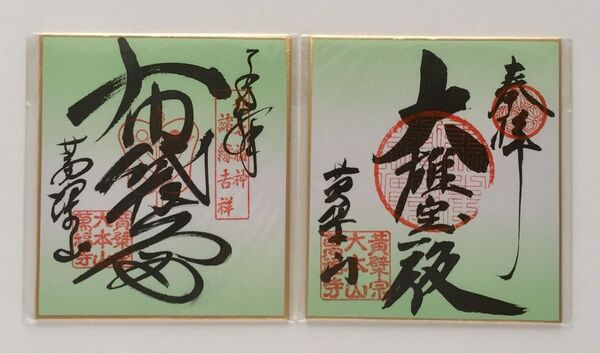 奉拝
大雄宝殿
黄檗山
黄檗宗
大本山
萬福寺
奉拝
諸縁吉祥
布袋尊
黄檗山
黄檗宗
大本山
萬福寺